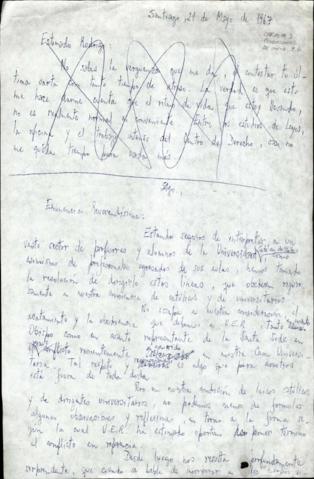 Santiago, 21 de Mayo de 1967
Estimado
No sabes la vergüenza que me da, el contestar tu úl
tima carta con tanto tiempo de atraso. La verdad es que esto
me hace darme cuenta que el ritmo de vida que estoy llevando,
no es realmente normal ni conveniente. Entre los estudios de Leyes,
la oficina y el trabajo intenso del Centro de Derecho, casi no
me queda tiempo para nada más
Eminencia Reverendísima:
Estando seguros de interpretar a un
vasto sector de profesores y alumnos de la Universidad
como de profesionales egresados de sus aulas, hemos tomado
la resolución de dirigirle estas líneas, que
a nuestra conciencia de católicos y de universitarios.
No escapa a nuestra consideración, el
acatamiento y la deferencia que debemos a V.E.R. tanto
Obispo como en cuanto representante de la Santa Sede en
conflicto recientemente en nuestra Casa Univers
taria. Tal respeto es algo que para nosotros
está fuera de toda duda.
Pero en nuestra condición de laicos católicos
y de dirigentes universitarios, no podemos menos de formular
algunas observaciones y reflexiones, en torno a la forma en
que la cual V.E.R. ha estimado oportuno poner término
al conflicto en referencia.
Desde luego nos resulta profundamente
sorprendente, que cuando se habla de incorporar a los